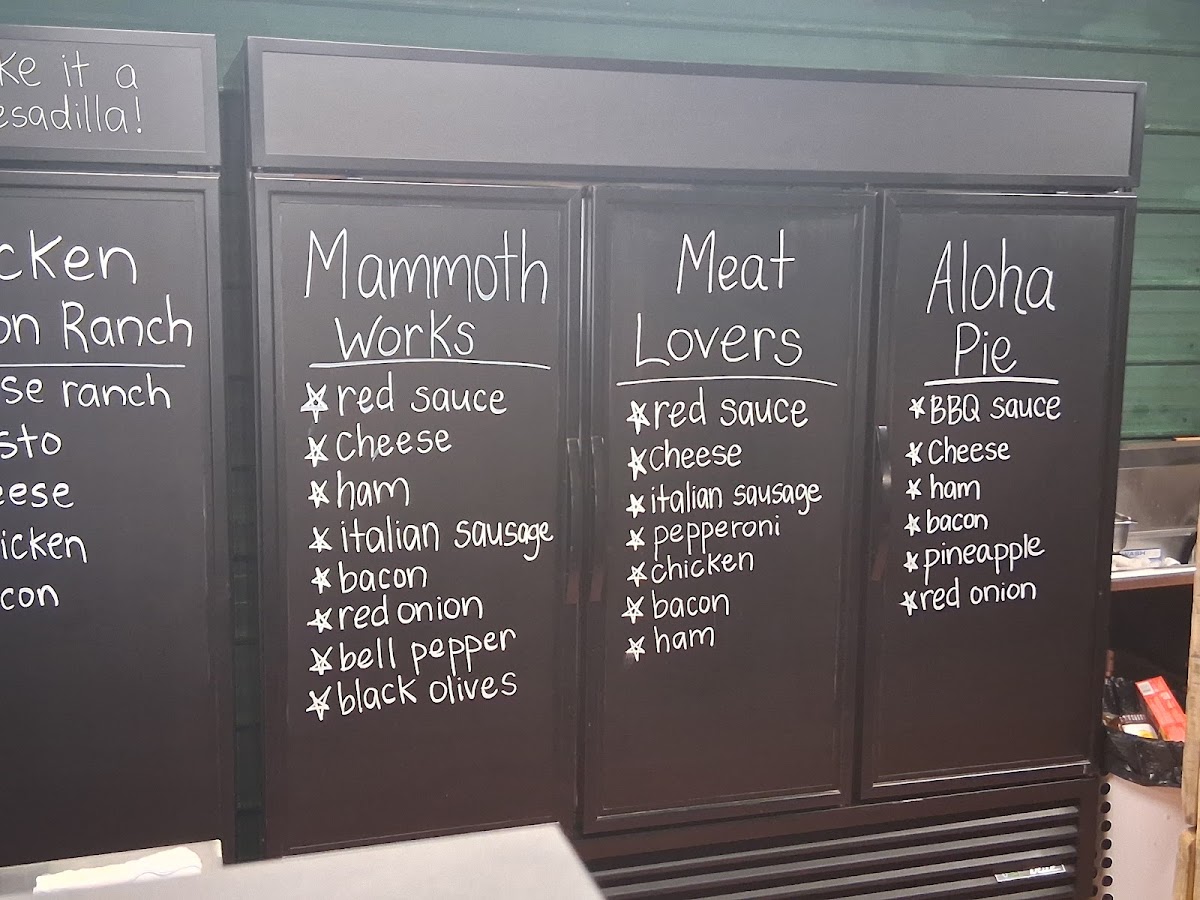 ke it a
esadilla!
cken
on Ranch
se ranch
sto
eese
icken
con
Mammoth
Works
red sauce
cheese
ham
italian sausage
bacon
red onion
bell pepper
black olives
Meat
Lovers
red sauce
cheese
italian sausage
pepperoni
chicken
bacon
ham
Aloha
Pie
BBQ sauce
Cheese
ham
bacon
pineapple
red onion